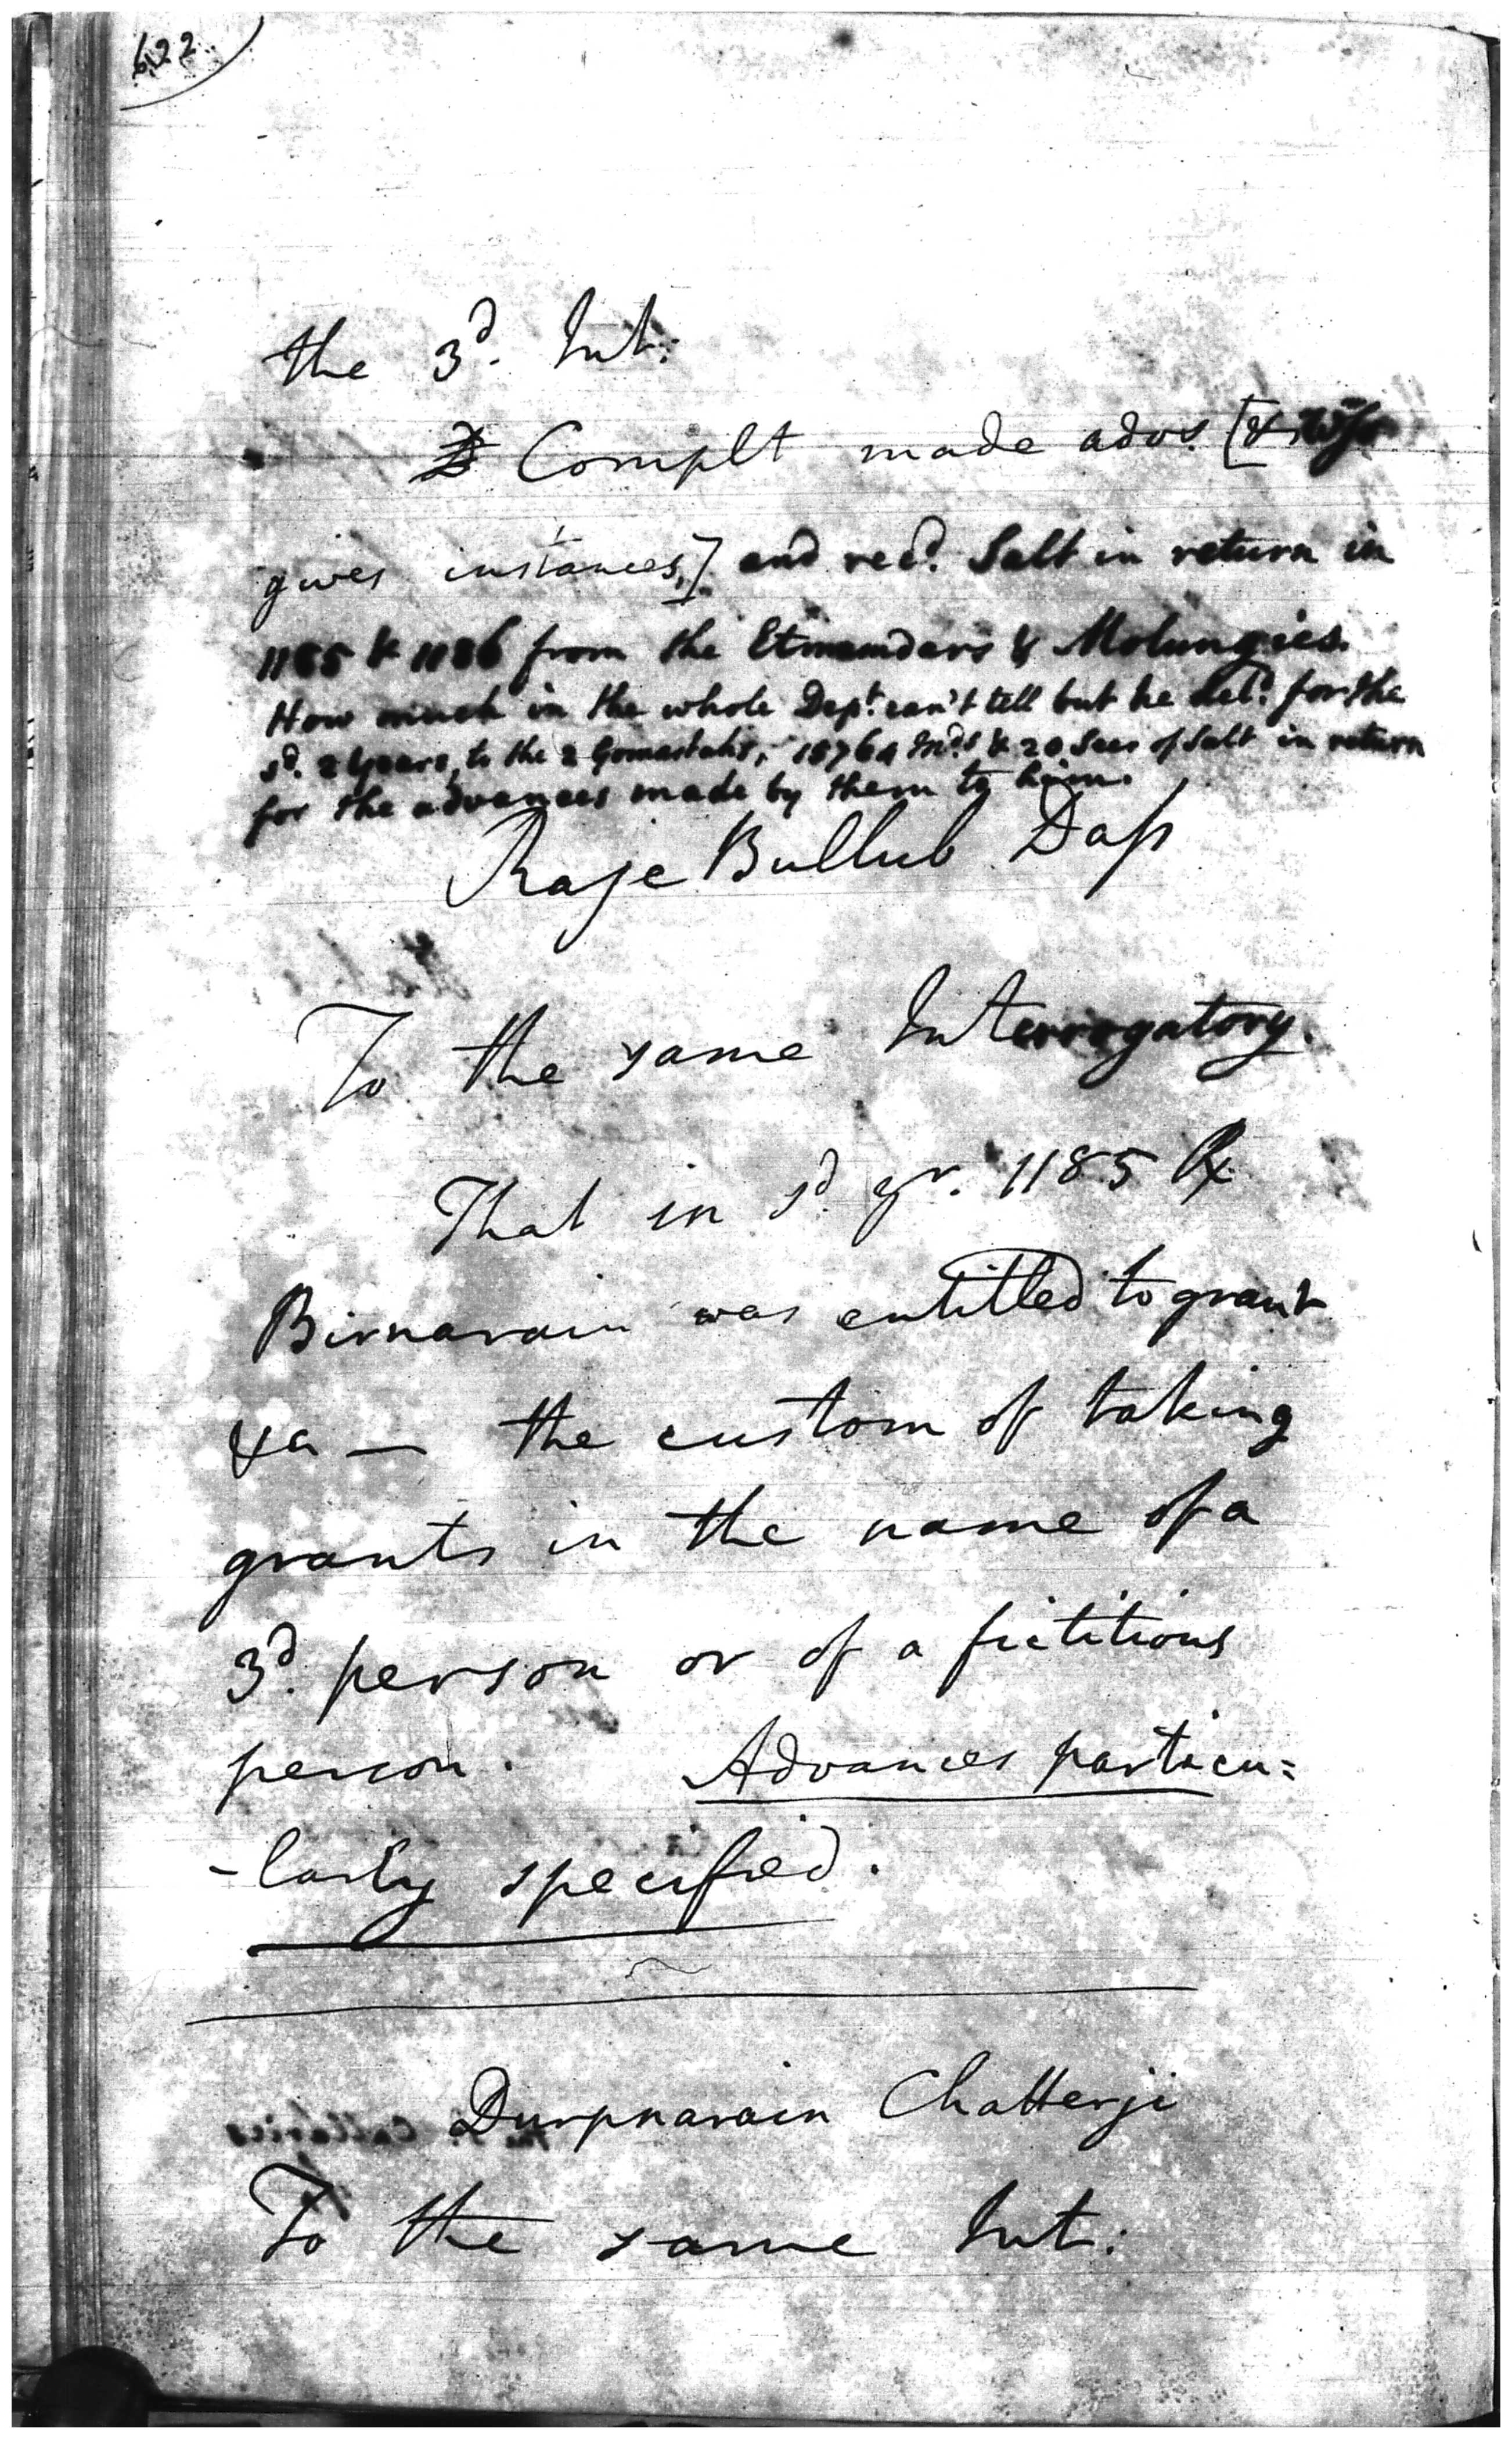 622
the 3d. Int:
Complt made advs. [&
gives instances,] and recd. Salt in return in
1185 & 1186 from the Etmamdars & Molungies.
How much in the whole Dept. can't tell but he deld. for the
sd. 2 Years, to the 2 Gomastahs, 18764 Mds. & 20 Sees of Salt in return
for the advances made by them to him.
Raje Bullub Dass
To the same Interrogatory.
That in sd. yr. 1185 R
Birnarain was entitled to grant
&a — the custom of taking
grants in the name of a
3d. person or of a fictitious
person. Advances particu=
-larly specified.
Durpnarain Chatterji
To the same Int: